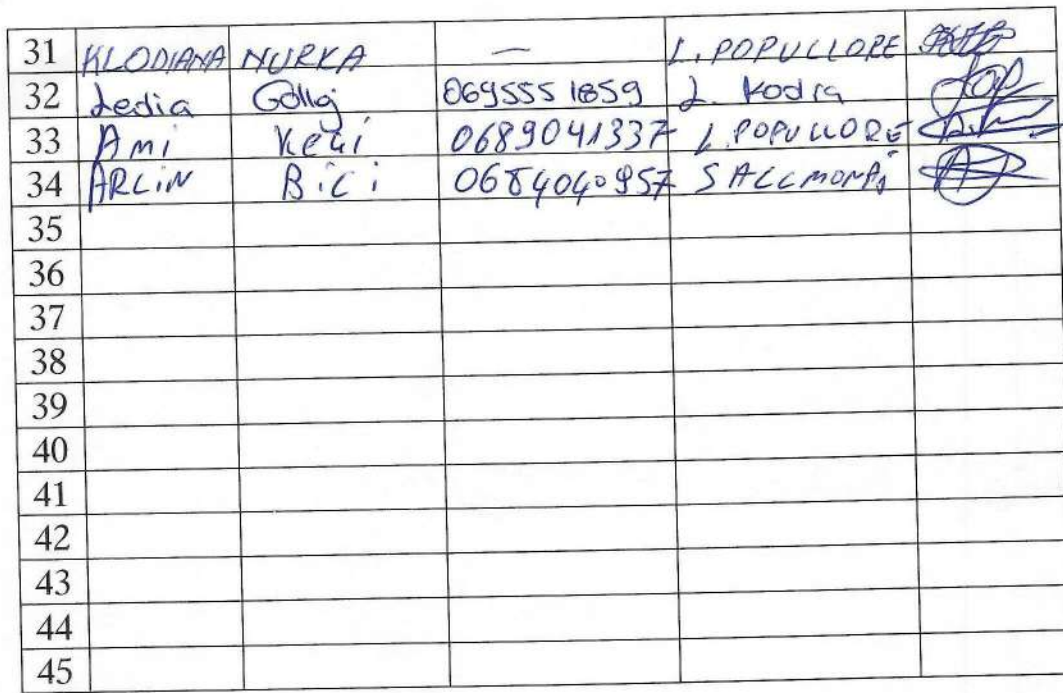 31 KLODIANA NURKA — L. POPULLORE
32 Ledia Gollaj 0695551859 L. Kodra
33 Ami Keçi 0689041337 L. POPULLORE
34 ARLIN BiCi 0684040957
35
36
37
38
39
40
41
42
43
44
45